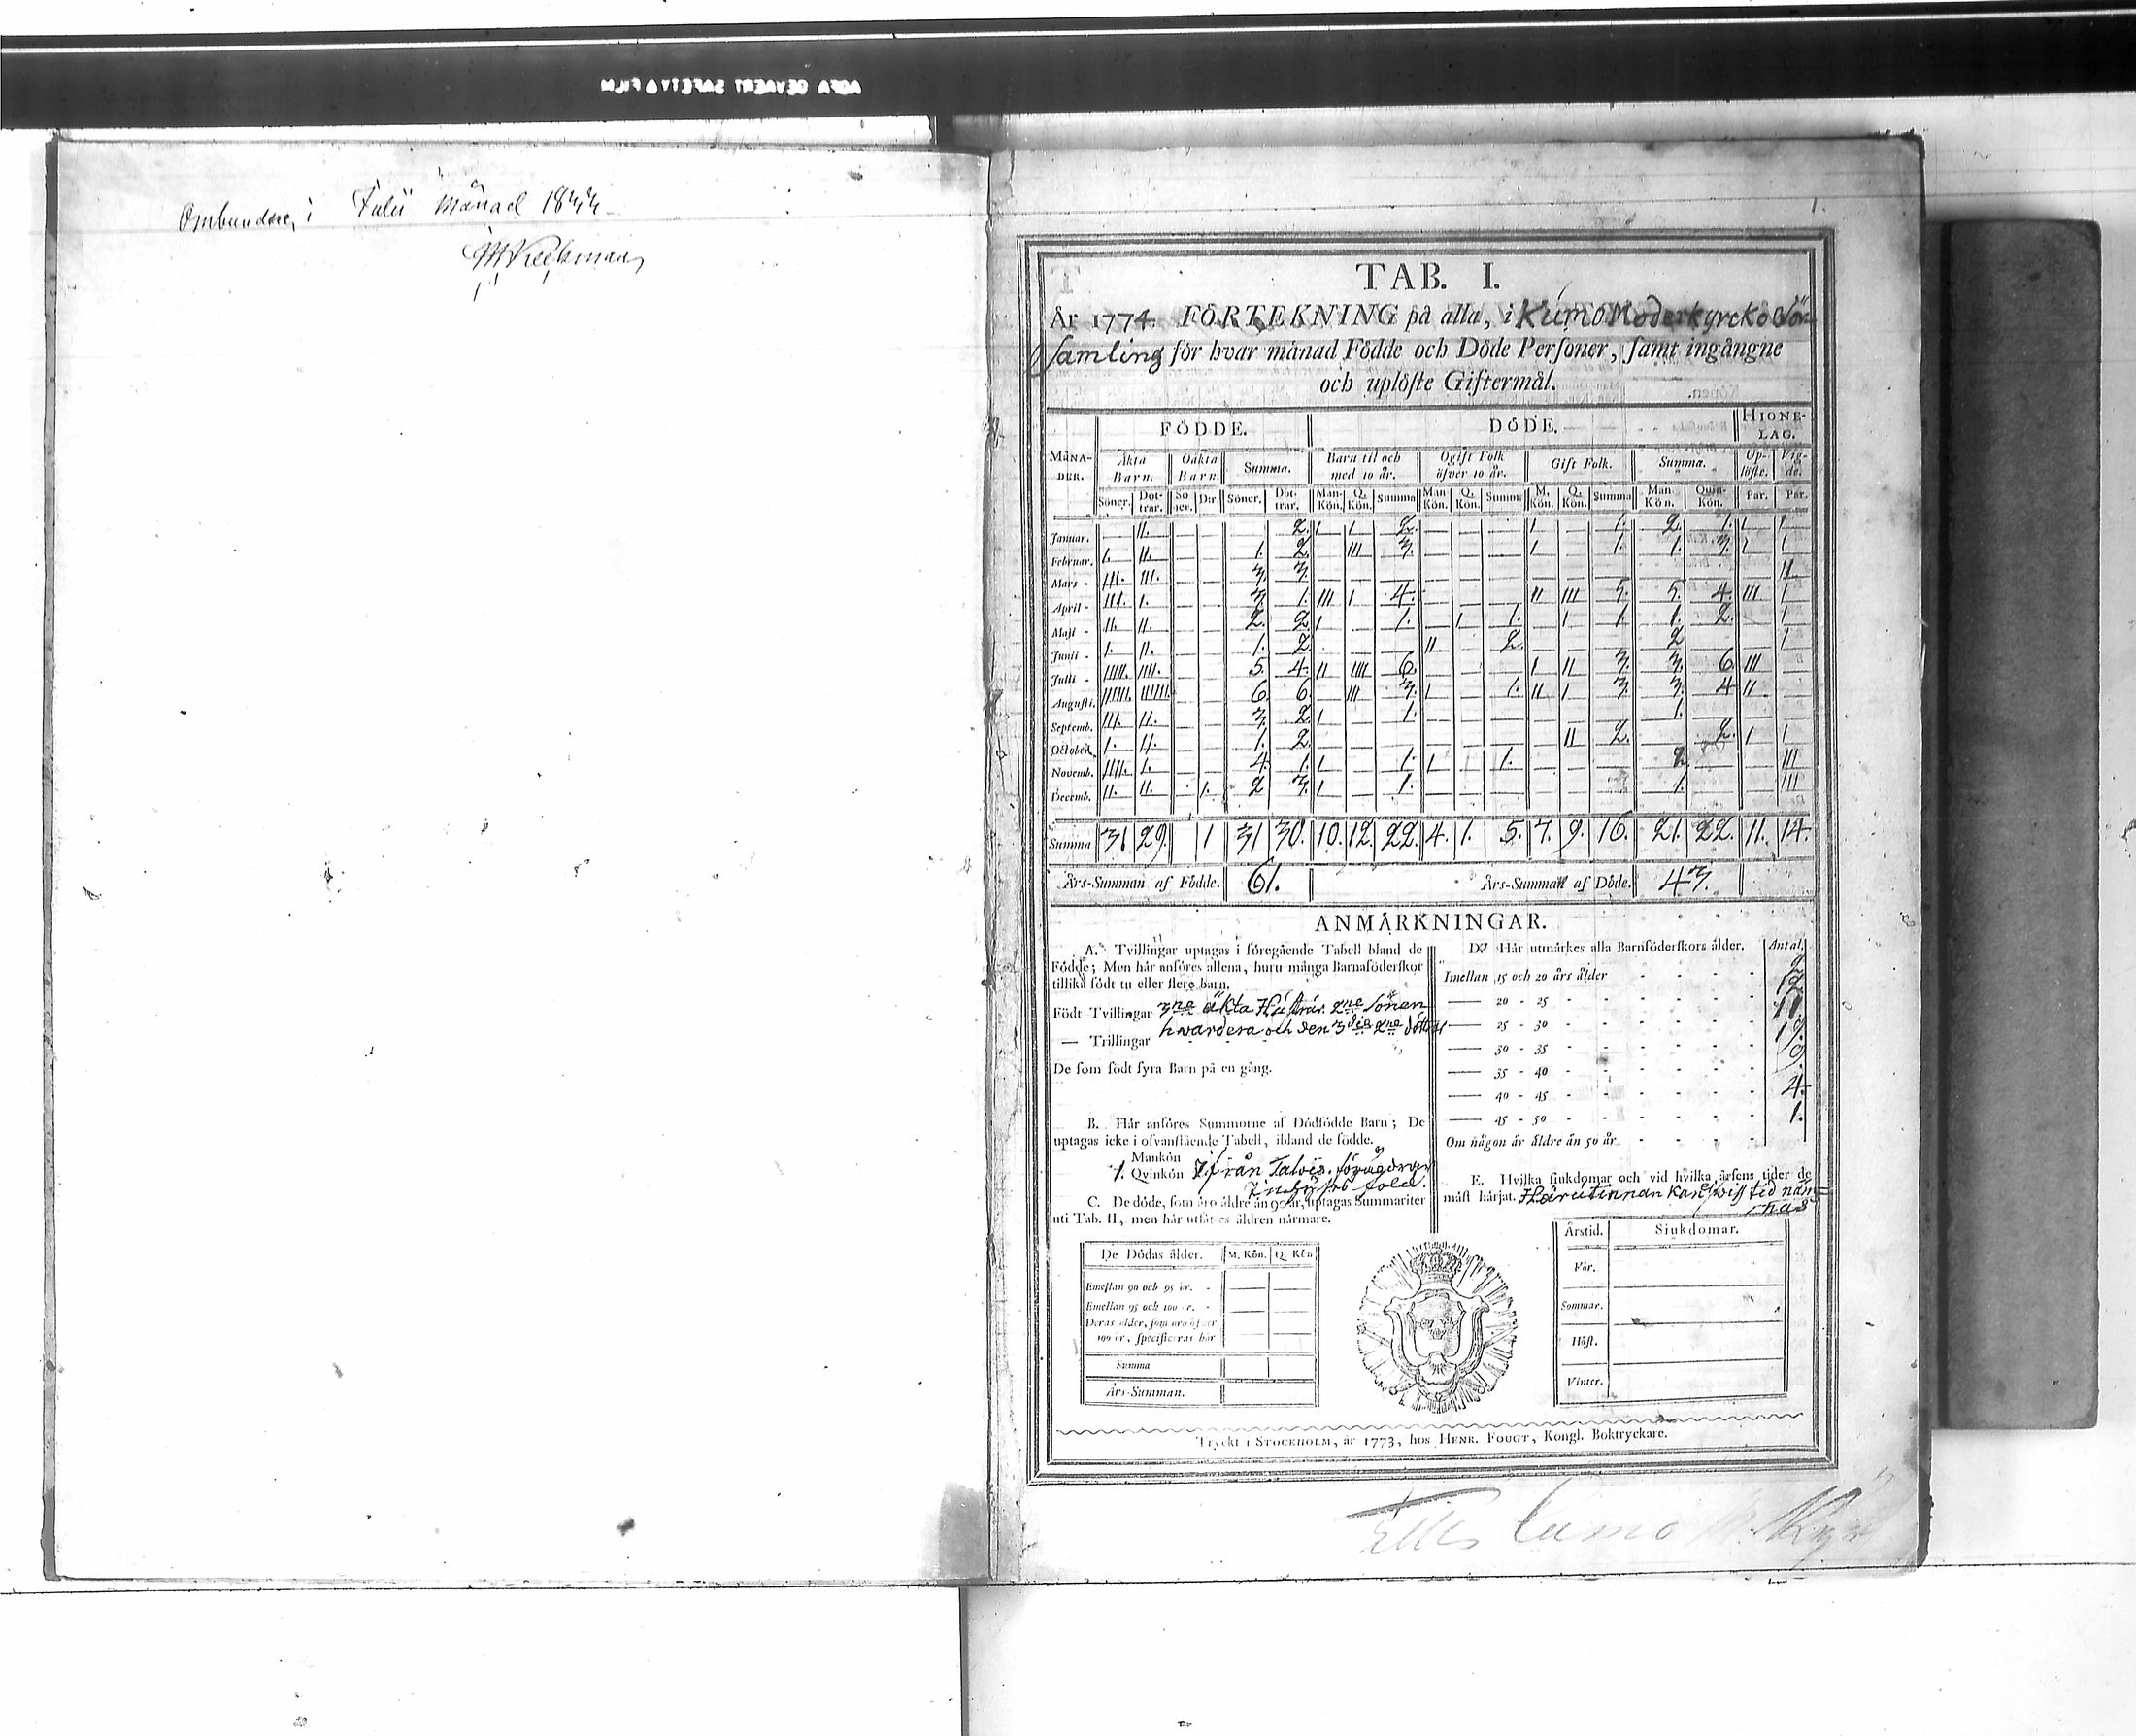 Ombunden i Julii Månad 1844
1.
TAB. I.
År 1774. FÖRTEKNING på alla, i Kumo Moderkyrcko För
samling för hvar månad Födde och Döde Personer, samt ingångne
och uplöste Giftermål.
MÅNADER. FÖDDE. DÖDE. HIONELAG.
Äkta Barn. Oäkta Barn. Summa. Barn til och med 10 år. Ogift Folk öfver 10 år. Gift Folk. Summa. Uplöste. Vigde.
Söner. Döttrar. Söner. Dtr. Söner. Döttrar. Mankön. Q. Kön. Summa Man Kön. Q. Kön. Summa M. Kön. Q. Kön. Summa Man Kön. Quinkön. Par. Par.
Januar. — II. — — — 2. I I 2. — — — I — 1. 2. 1. I I
Februar. I. II. — — 1. 2. — III 3. — — — I — 1. 1. 3. I I
Mars - III. III. — — 3. 3. — — — — — — — — — — — — II.
April - III. I. — — 3. 1. III I 4. — — — II III 5. 5. 4. III I
Maji - II. II. — — 2. 2. I — 1. — I 1. — I 1. 1. 2. — I
Junii - I. II. — — 1. 2. — — — II — 2. — — — 2 — — I
Julii - IIIII. IIII. — — 5. 4. II IIII 6. — — — I II 3. 3. 6. III —
Augusti. IIIIII. IIIIII. — — 6. 6. — III 3. I — 1. II I 3. 3. 4 II —
Septemb. III. II. — — 3. 2. I — 1. — — — — — — 1. — — —
October. I. II. — — 1. 2. — — — — — — — II 2. — 2. I I
Novemb. IIII. I. — — 4. 1. I — 1. I — 1. — — — 2 — — III
Decemb. II. II. — I. 2 3. I — 1. — — — — — — 1. — — III
Summa 31 29. 1 31 30. 10. 12. 22. 4. 1. 5. 7. 9. 16. 21. 22. 11. 14.
Års-Summan af Födde. 61. Års-Summan af Döde. 43.
ANMÄRKNINGAR.
A. Tvillingar uptagas i föregående Tabell bland de
Födde; Men här anföres allena, huru många Barnaföderskor
tillika födt tu eller flere barn.
Födt Tvillingar 3ne äkta Hustrur 2ne söner
hwardera och den 3die 2ne döttrar
— Trillingar
De som födt fyra Barn på en gång.
B. Här anföres Summorne af Dödfödde Barn; De
uptagas icke i ofvanstående Tabell, ibland de födde.
Mankön
1. Qvinkön ifrån
C. De döde, som äro äldre än 90 år, uptagas Summariter
uti Tab. II, men här utsättes åldren närmare.
De Dödas ålder. M. Kön. Q. Kön
Emellan 90 och 95 år. -
Emellan 95 och 100 år. -
Deras ålder, som äro öfver
100 år, specificeras här
Summa
Års-Summan.
D. Här utmärkes alla Barnföderskors ålder. Antal.
Imellan 15 och 20 års ålder
— 20 - 25
— 25 - 30
— 30 - 35
— 35 - 40
— 40 - 45 4.
— 45 - 50 1.
Om någon är äldre än 50 år
E. Hvilka siukdomar och vid hvilka årsens tider de
mäst härjat. Härutinnan kan ej wiss tid näm=
nas
Årstid. Siukdomar.
Vår.
Sommar.
Höst.
Vinter.
Tryckt i STOCKHOLM, år 1773, hos HENR. FOUGT, Kongl. Boktryckare.